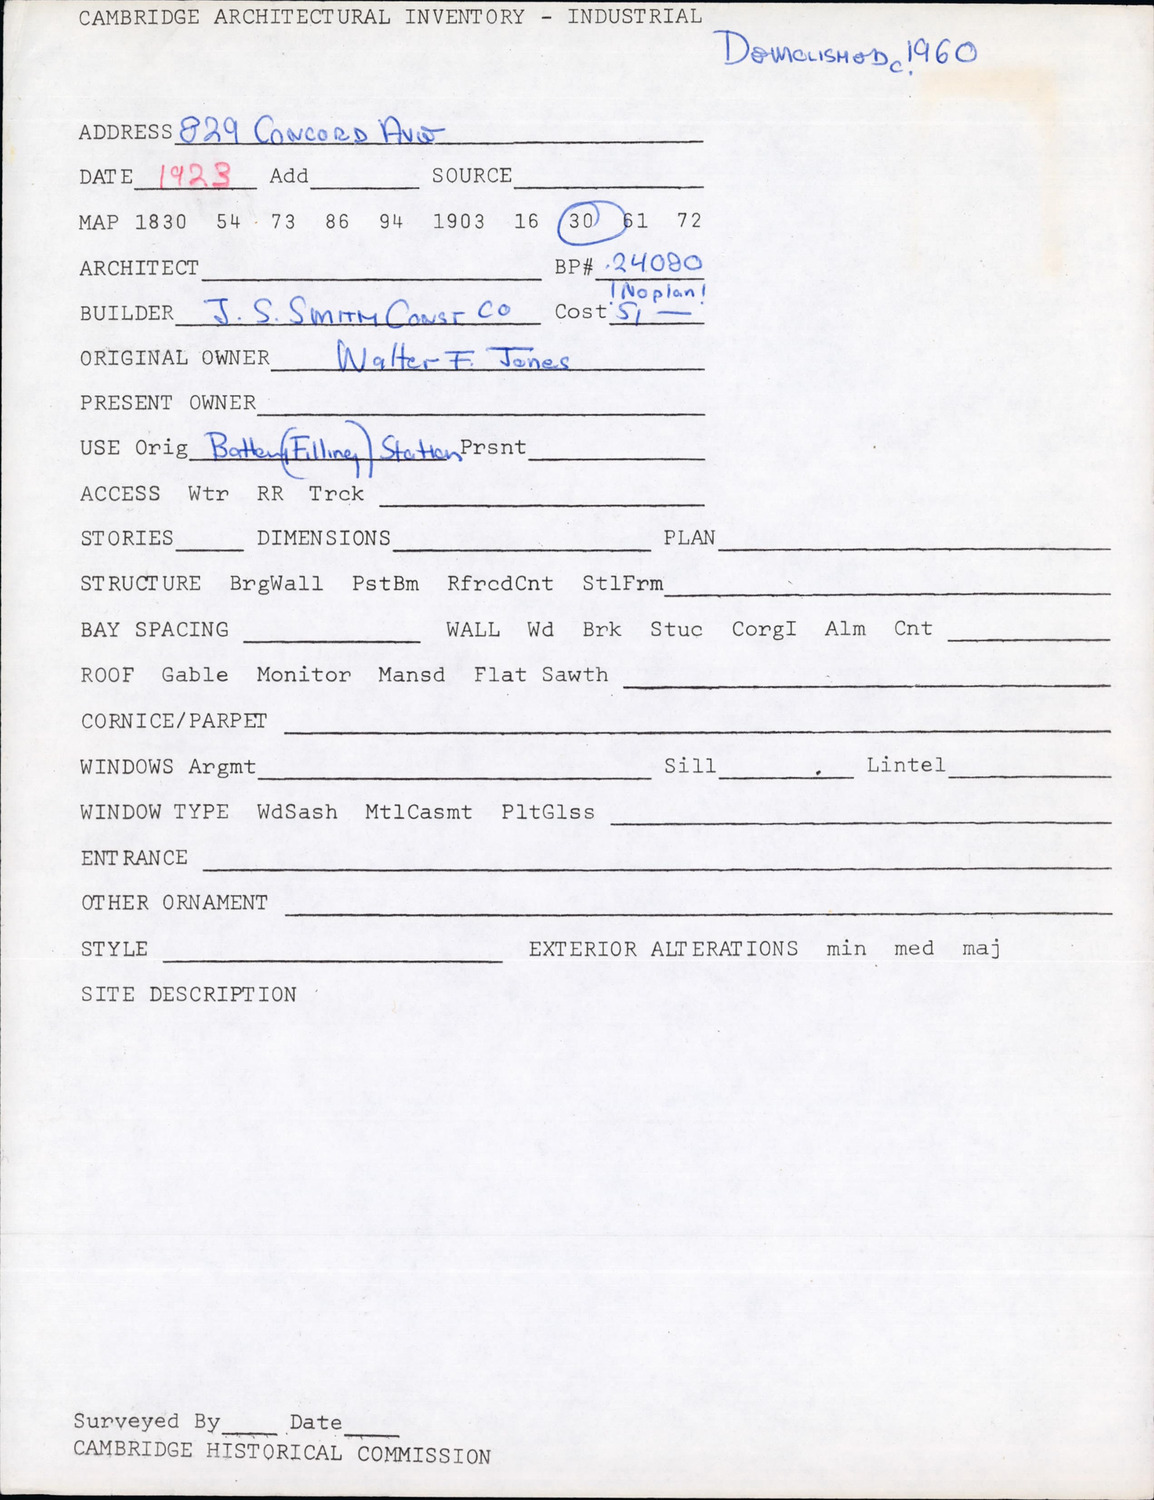 CAMBRIDGE ARCHITECTURAL INVENTORY - INDUSTRIAL
Demolished c. 1960
ADDRESS 829 Concord Ave
DATE 1923 Add SOURCE
MAP 1830 54 73 86 94 1903 16 30 61 72
ARCHITECT BP# 24080
(No plan)
BUILDER J. S. Smith Const Co Cost 5, —
ORIGINAL OWNER Walter F. Jones
PRESENT OWNER
USE Orig Battery (Filling) Station Prsnt
ACCESS Wtr RR Trck
STORIES DIMENSIONS PLAN
STRUCTURE BrgWall PstBm RfrcdCnt StlFrm
BAY SPACING WALL Wd Brk Stuc CorgI Alm Cnt
ROOF Gable Monitor Mansd Flat Sawth
CORNICE/PARPET
WINDOWS Argmt Sill Lintel
WINDOW TYPE WdSash MtlCasmt PltGlss
ENTRANCE
OTHER ORNAMENT
STYLE EXTERIOR ALTERATIONS min med maj
SITE DESCRIPTION
Surveyed By Date
CAMBRIDGE HISTORICAL COMMISSION